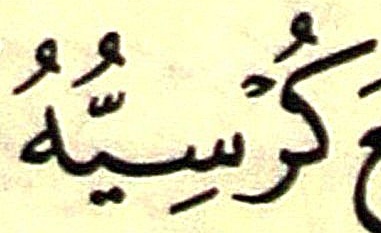 كُرْسِيُّهُ